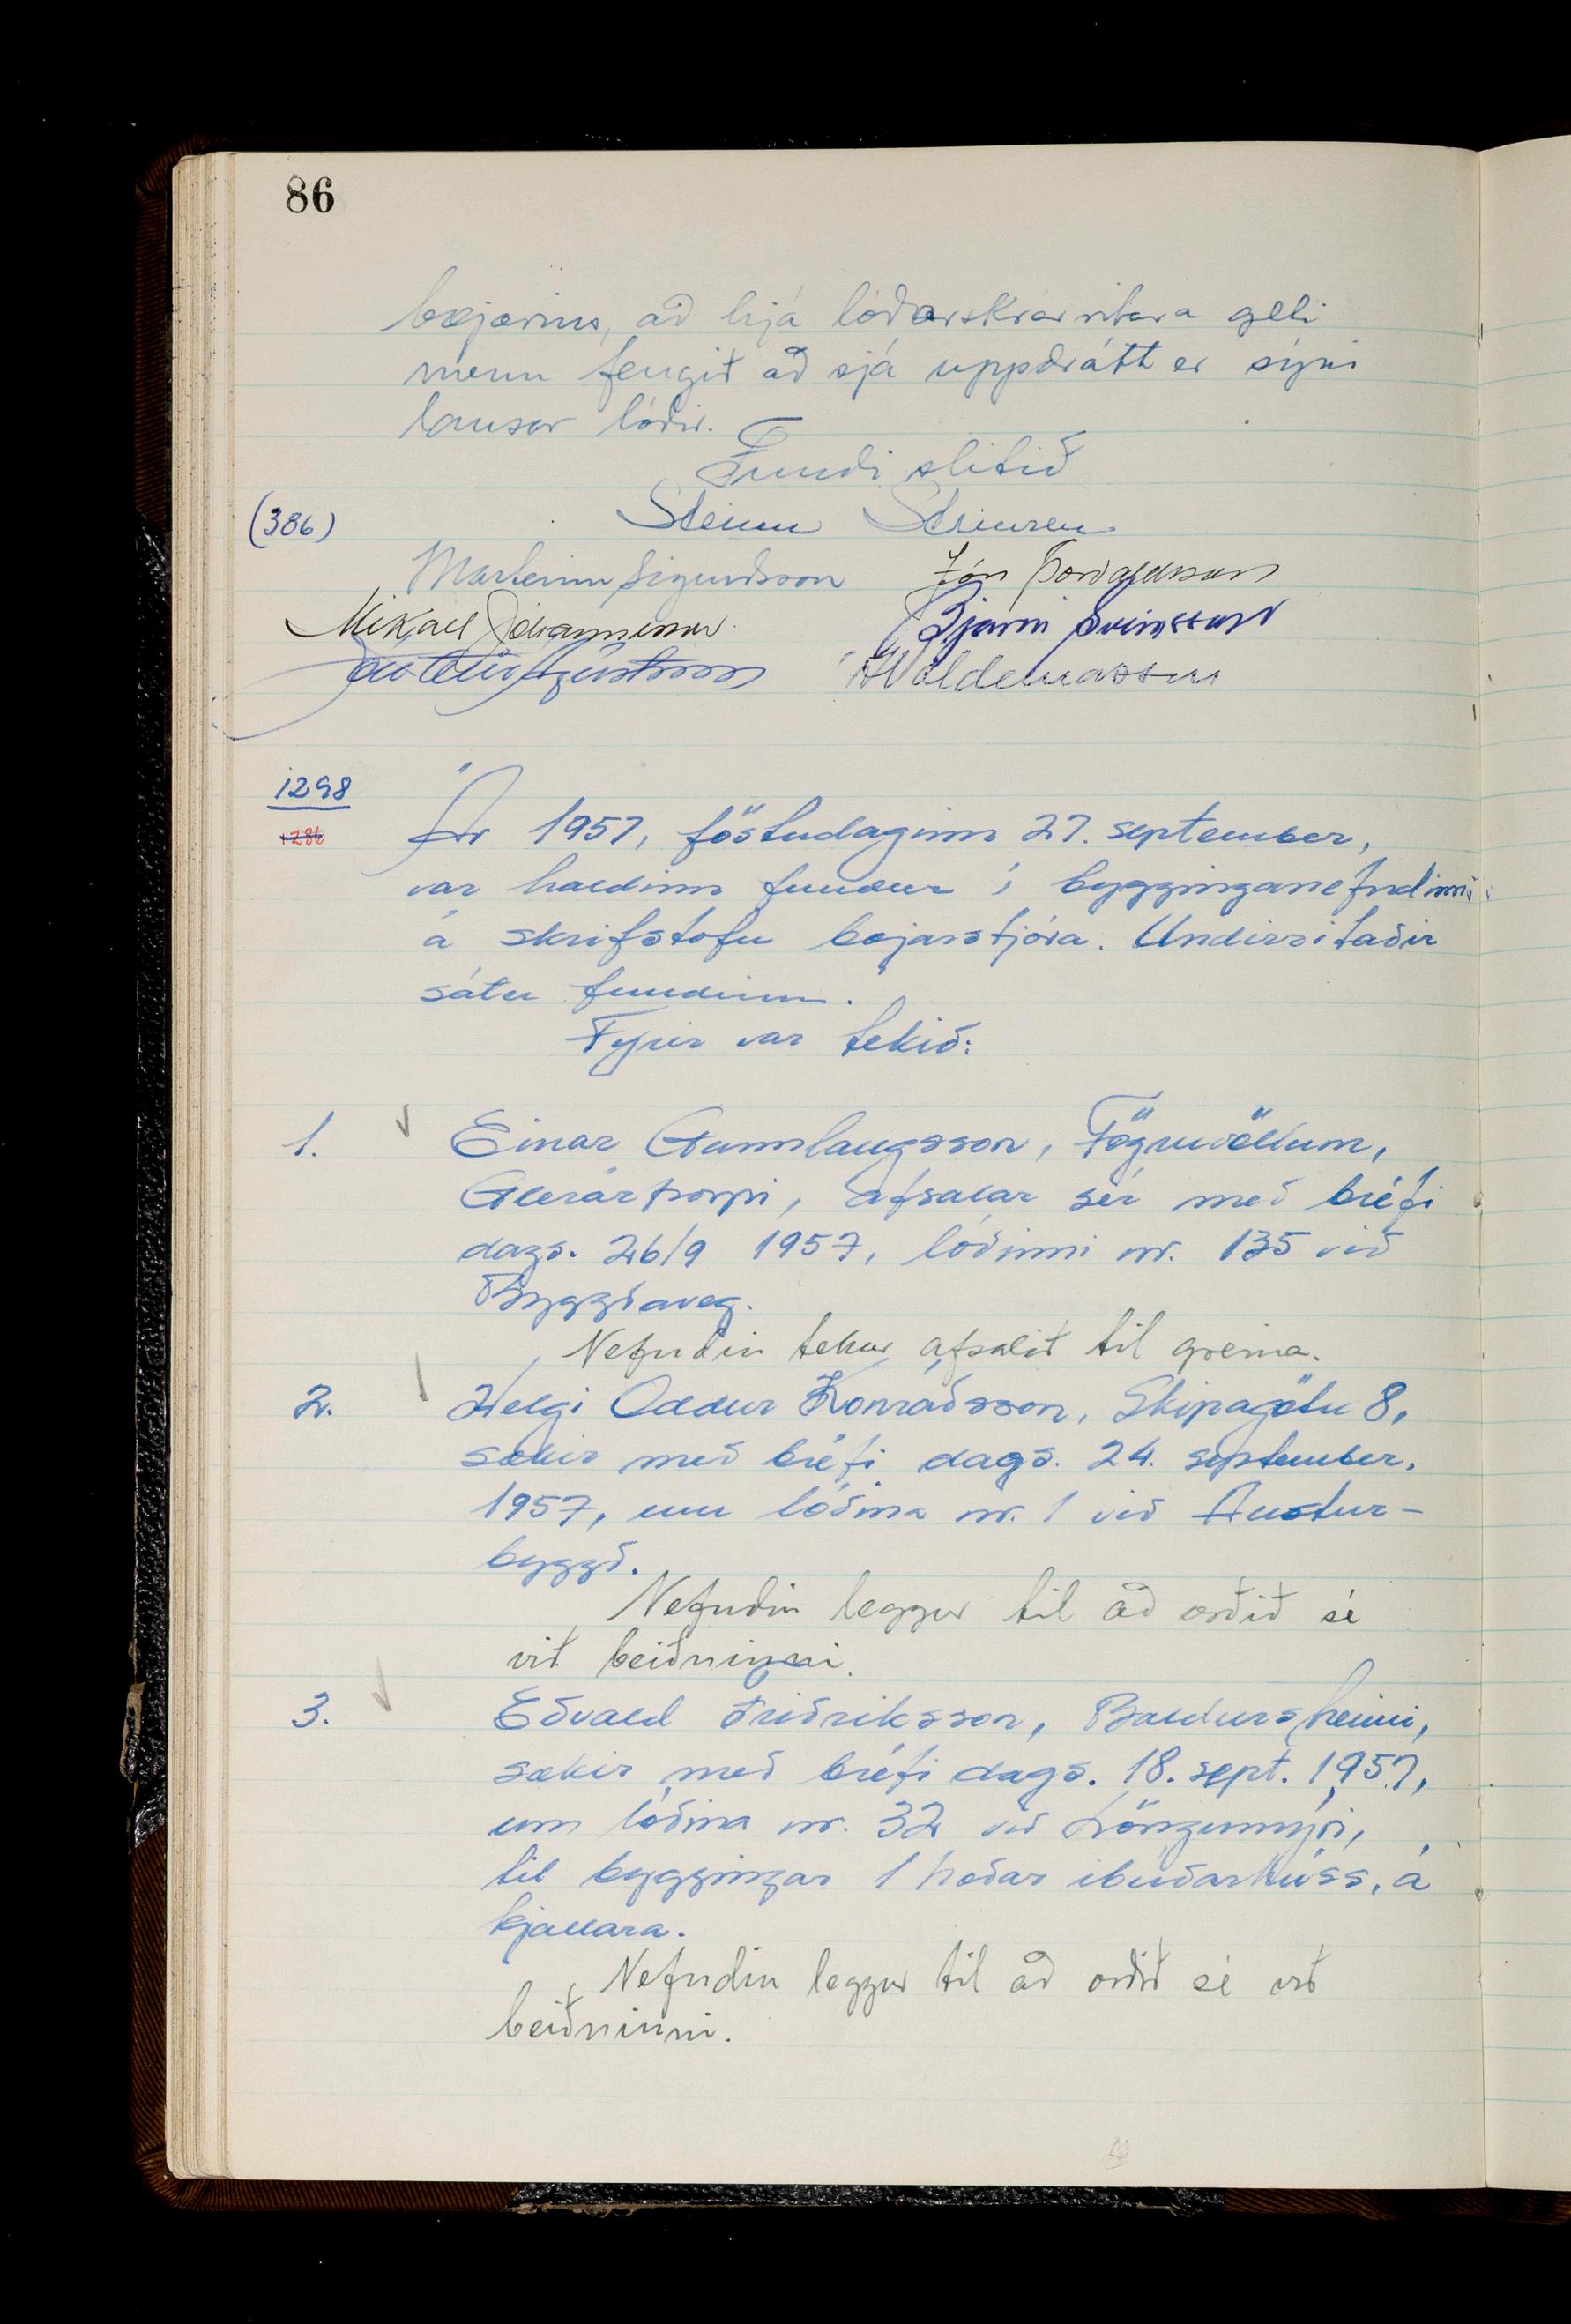 86
bæjarins, að hjá lóðarskrárritara geti
menn fengið að sjá uppdrátt er sýni
lausar lóðir.
Fundi slitið
(386)
Steinn Steinsen
Marteinn Sigurðsson Jón Þorvaldsson
Mikael Jóhannesson Bjarni Sveinsson
Ágústsson
1298
1286
Ár 1957, föstudaginn 27. september,
var haldinn fundur í bygginganefndinni
á skrifstofu bæjarstjóra. Undirritaðir
sátu fundinn.
Fyrir var tekið:
1. Einar Gunnlaugsson, Fögruvöllum,
Glerárþorpi, afsalar sér með bréfi
dags. 26/9 1957, lóðinni nr. 135 við
Byggðaveg.
Nefndin tekur afsalið til greina.
2. Helgi Oddur Konráðsson, Skipagötu 8,
sækir með bréfi dags. 24. september,
1957, um lóðina nr. 1 við Austur-
byggð.
Nefndin leggur til að orðið sé
við beiðninni.
3. Eðvald Friðriksson, Baldursheimi,
sækir með bréfi dags. 18. sept. 1957,
um lóðina nr. 32 við Löngumýri,
til byggingar 1 hæðar íbúðarhúss, á
kjallara.
Nefndin leggur til að orðið sé við
beiðninni.